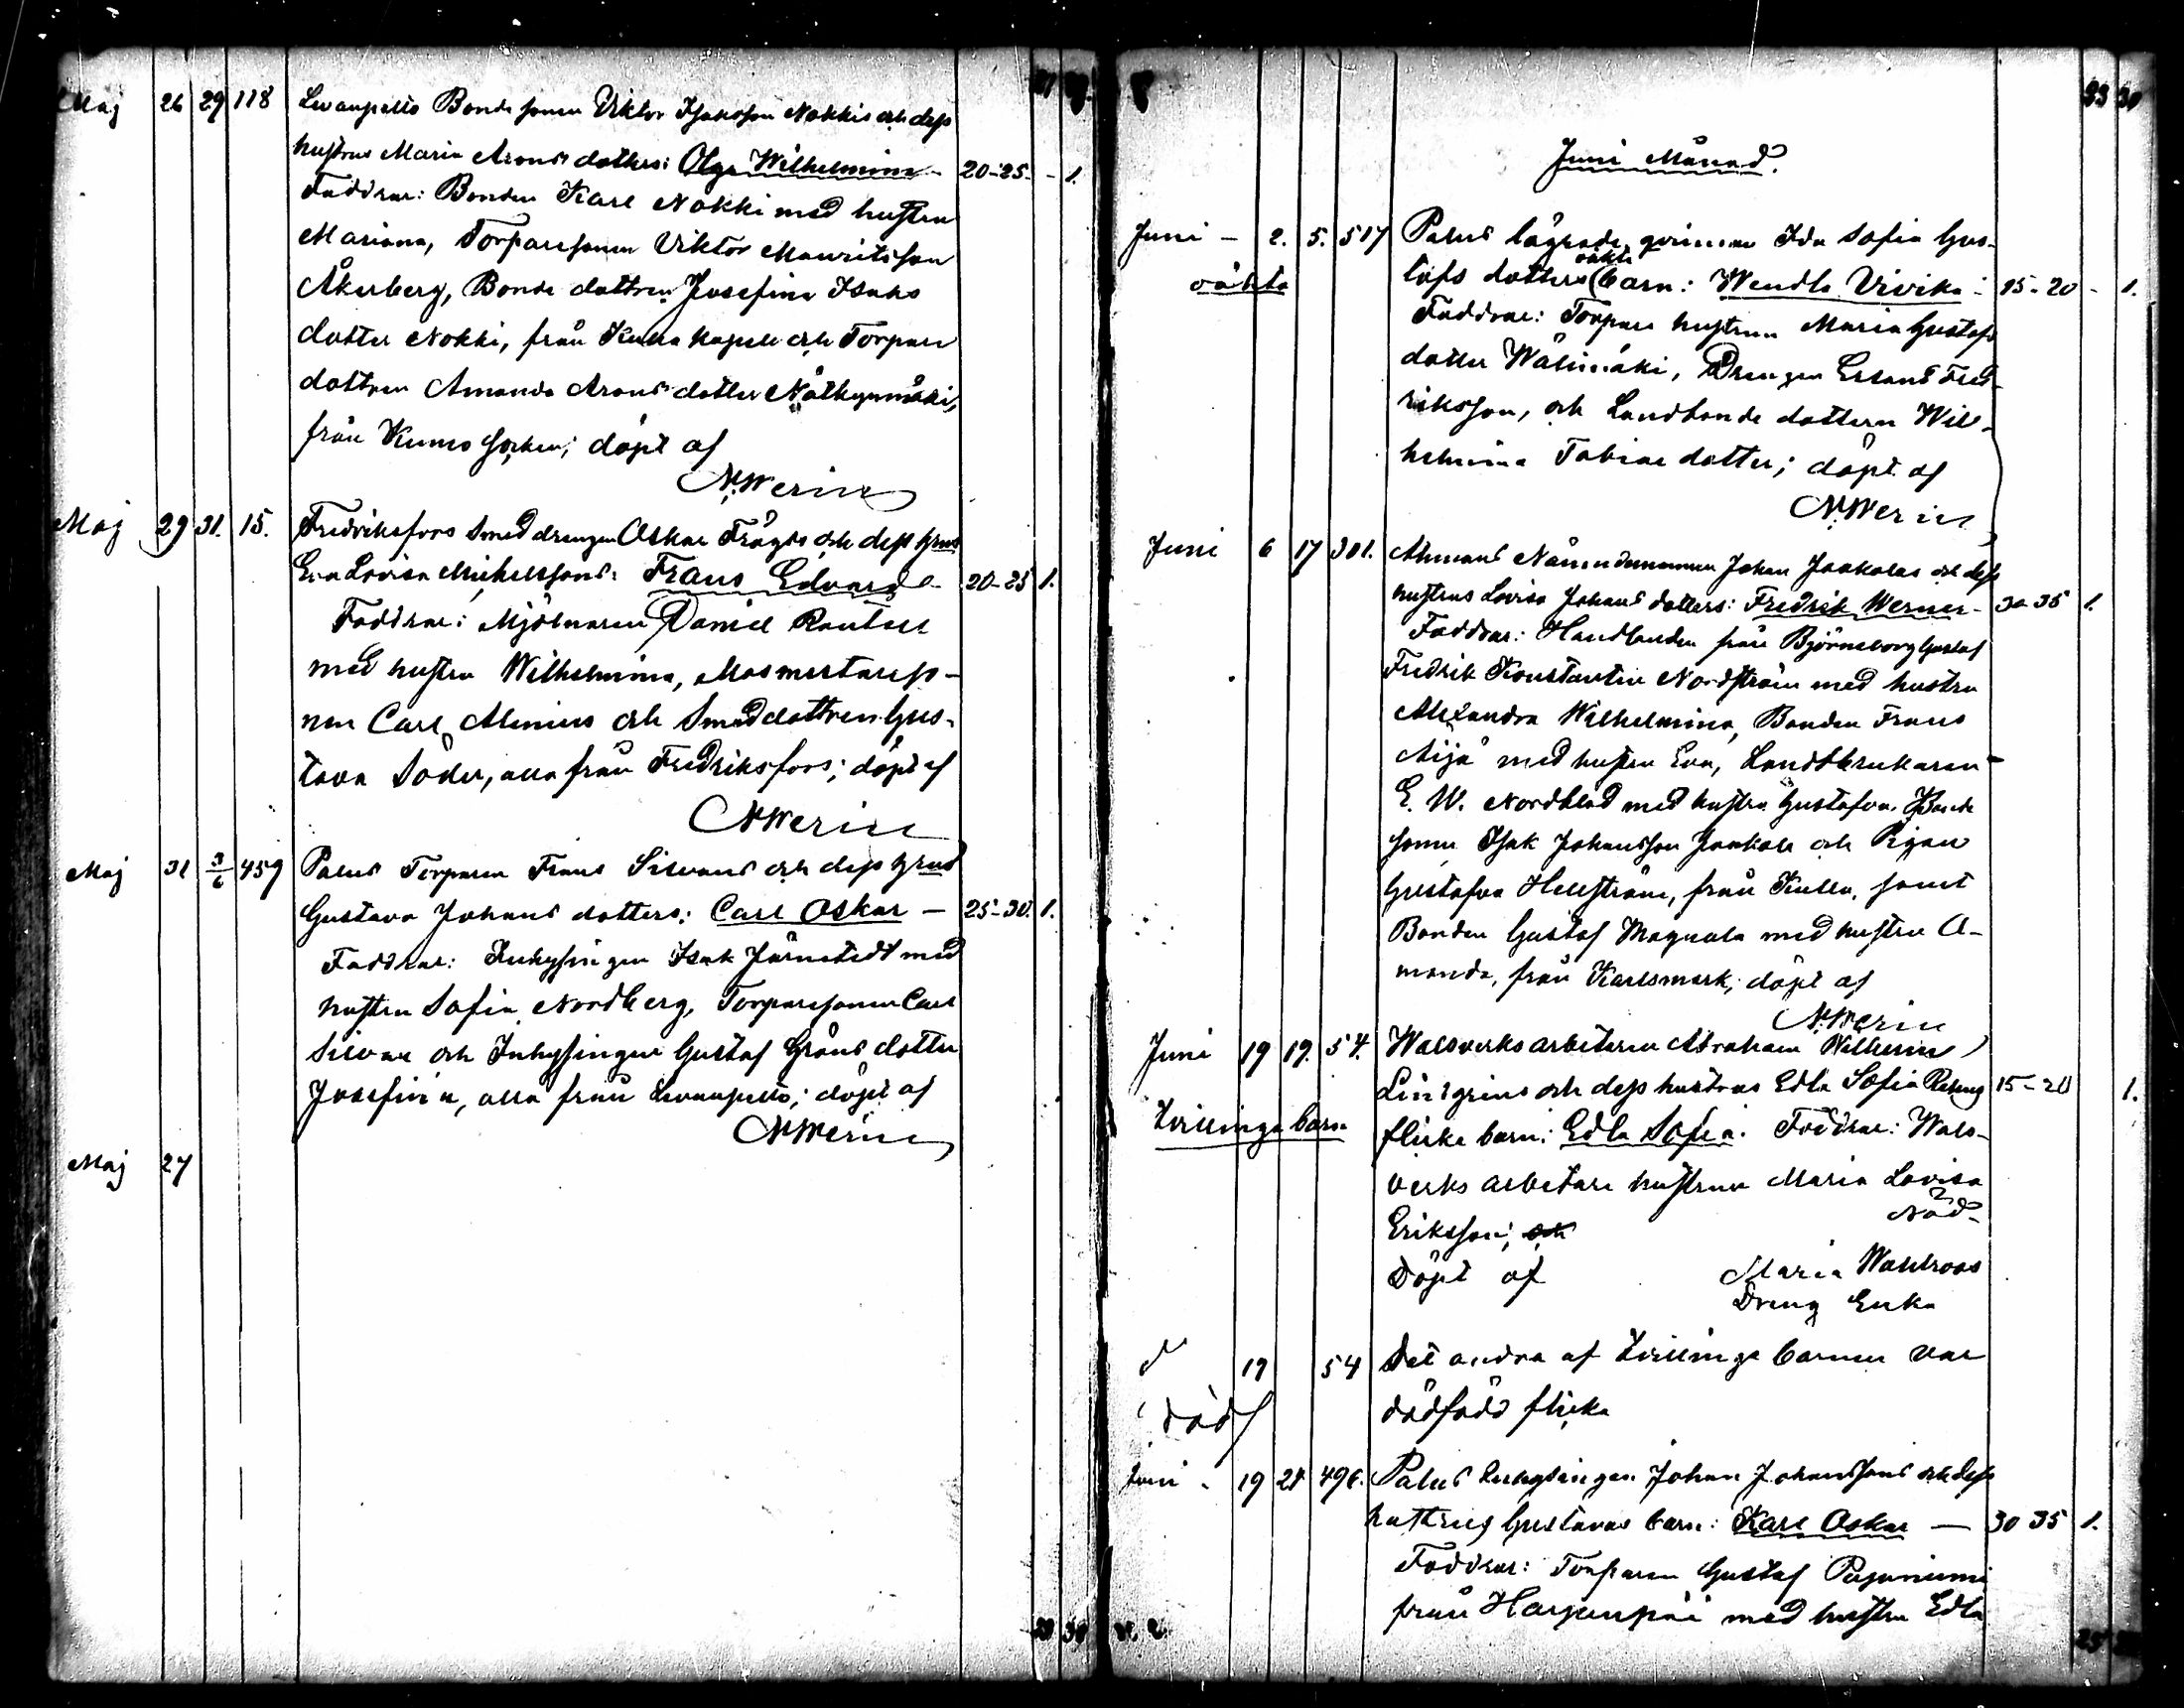 Maj 26 29 118 Levanpelto Bonde sonen Viktor Isaksson Nokkis och dess
hustrus Maria Arons dotters: Olga Wilhelmina - 20-25. - 1.
Faddrar: Bonden Karl Nokki med hustru
Mariana, Torparesonen Viktor Mauritsson
Åkerberg, Bonde dottren Josefina Isaks
dotter Nokki, från Kulla kapell och Torpare
dottren Amanda Arons dotter
från Kumo socken; döpt af
N. Werin
Maj 29 31. 15. Fredriksfors Smeddrengen Oskar Frågds och dess hrus
Eva Lovisa Michelssons: Frans Edvard - 20-25 1.
Faddrar: Mjölnaren Daniel
med hustru Wilhelmina, Masmestareso-
nen Carl Alenius och Smeddottren Gus-
tava Söder, alla från Fredriksfors; döpt af
N Werin
Maj 31 3/6 459 Palus Torparen Frans Silvans och dess hrus
Gustava Johans dotters: Carl Oskar - 25-30. 1.
Faddrar: Inhysingen Isak Järnstedt med
hustru Sofia Nordberg, Torparesonen Carl
Silvan och Inhysingen Gustaf Gröns dotter
Josefina, alla från Levanpelto; döpt af
N Werin
Maj 27
33 34
Juni Månad.
Juni - 2. 5. 517 Palus lägrade qvinnan Ida Sofia Gus-
oäkta
oäkta tafs dotters barn: Wendla Vivika - 15-20 - 1.
Faddrar: Torpare hustrun Maria Gustafs
dotter Wälimäki, Drengen Erland Fred-
riksson, och Landbonde dottern Wil-
helmina Tobias dotter; döpt af
N. Werin
Juni 6 17 301. Nämndemannen Johan Jaakolas och dess
hustrus Lovisa Johans dotters: Fredrik Werner - 30 35 1.
Faddrar: Handlanden från Björneborg Gustaf
Fredrik Konstantin Nordström med hustru
Alexandra Wilhelmina, Bonden Frans
Äijä med hustru Eva, Landtbrukaren
E. W. Nordblad med hustru Gustafva, Bonde
sonen Isak Johansson Jaakola och Pigan
Gustafva Hellström, från Kulla, samt
Bonden Gustaf Magnula med hustru A-
manda, från Karlsmark; döpt af
N. Werin
Juni 19 19. 54. Walsverks arbetaren Abraham Wilhelm
Lindgrens och dess hustrus Edla Sofia 15-20 1.
Tvillinga barn flicke barn: Edla Sofia. Faddrar: Wals-
verks arbetare hustrun Maria Lovisa
Eriksson; och Nöd-
Döpt af Maria Wahlroos
Dreng Enka
d 19 54 Det andra af Tvillinga barnen var
död dödfödd flicka
Juni. 19 24 496. Palus Inhysingen Johan Johanssons och dess
hustrus Gustavas barn: Karl Oskar - 30 35 1.
Faddrar: Torparen Gustaf Pajuniemi
från Harjunpää med hustru Edla